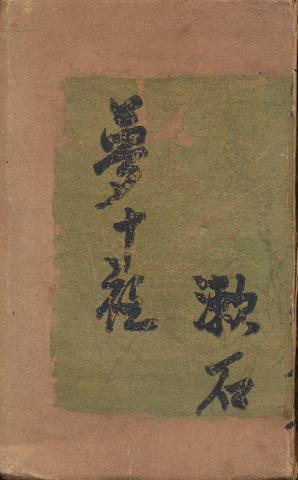 漱石
夢十夜